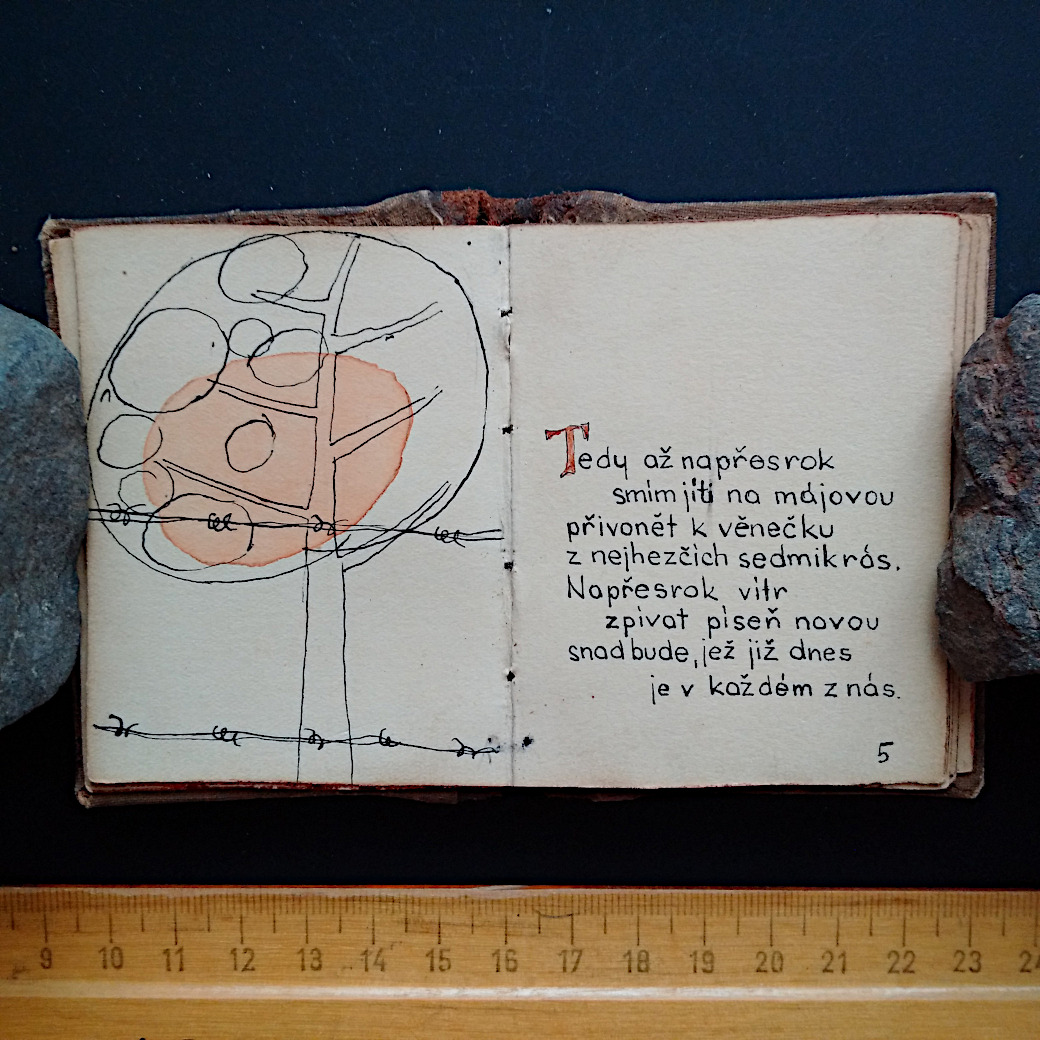 Tedy až napřesrok
smím jíti na májovou
přivonět k věnečku
z nejhezčích sedmikrás.
Napřesrok vítr
zpívat píseň novou
snad bude, jež již dnes
je v každém z nás.
5
9 10 11 12 13 14 15 16 17 18 19 20 21 22 23 24